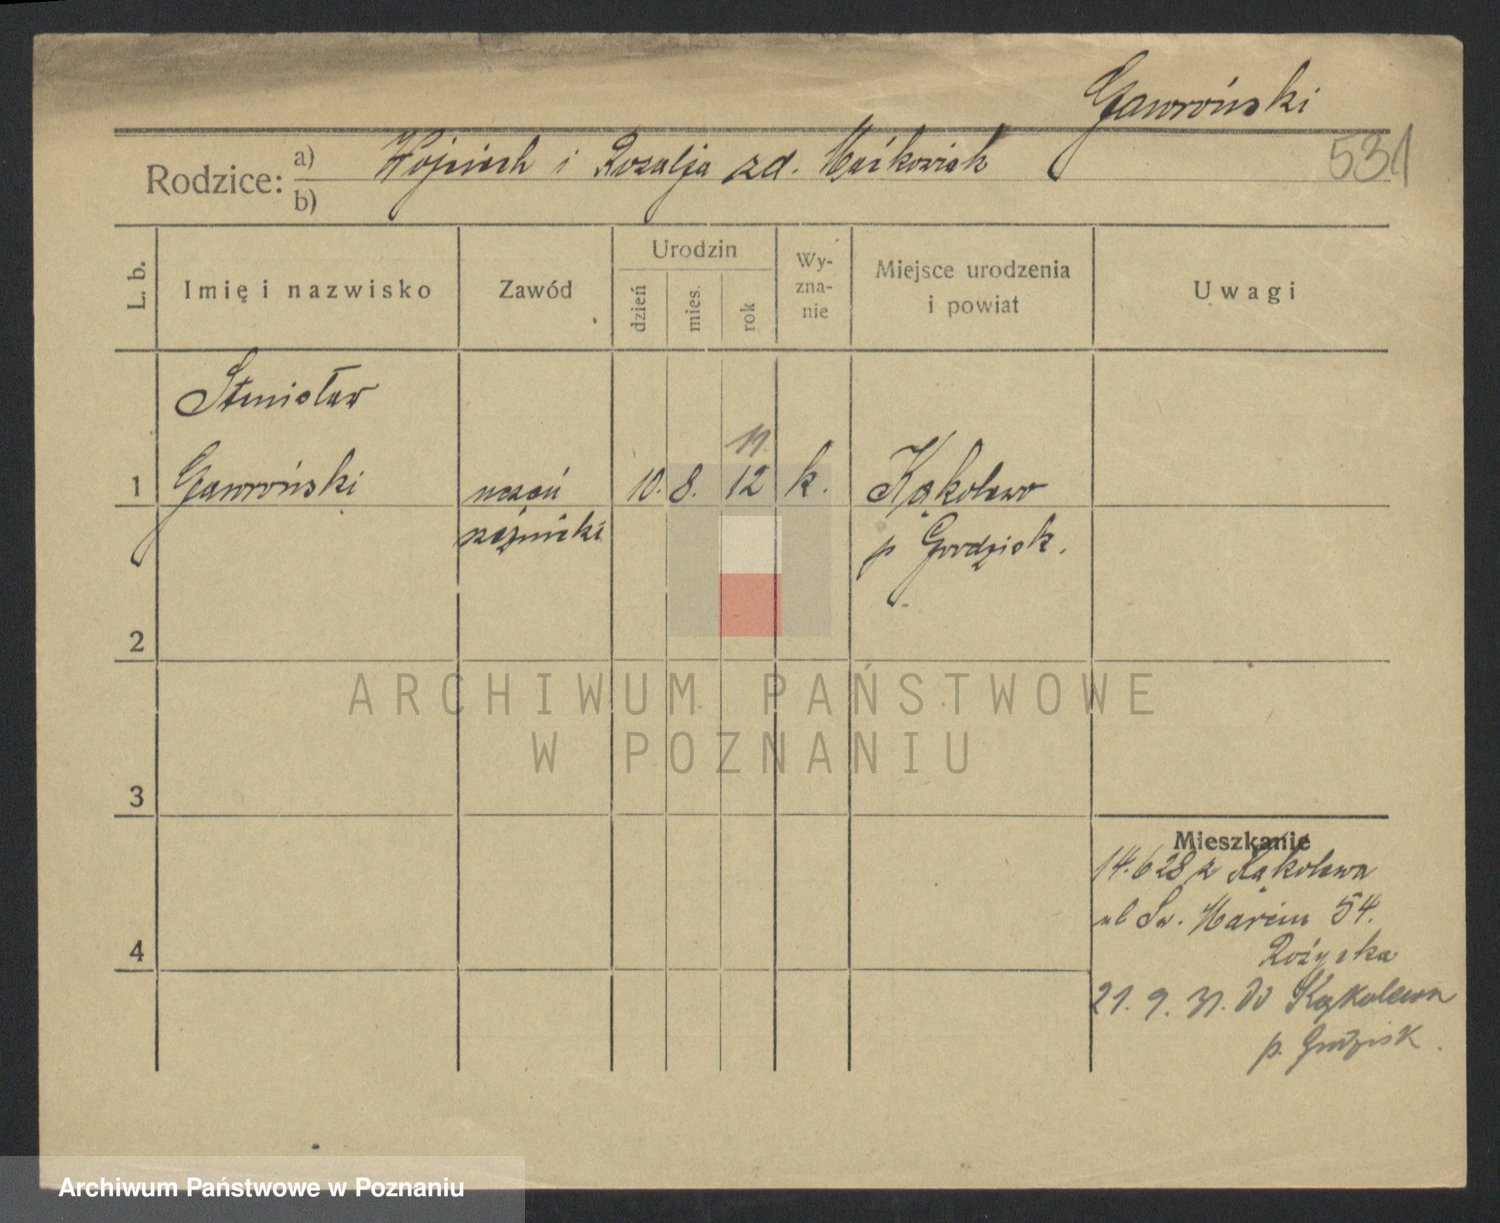 Gawroński
531
Rodzice: a) Wojciech i Rozalja zd. Maćkowiak
b)
L. b.
Imię i nazwisko
Zawód
Urodzin
dzień
mies.
rok
Wy-
zna-
nie
Miejsce urodzenia
i powiat
Uwagi
Stanisław
11.
1 Gawroński uczeń 10. 8. 12 k. Kąkolewo
rzeźnicki p Grodzisk.
2
ARCHIWUM PAŃSTWOWE
W POZNANIU
3
Mieszkanie
14.6 28 z Kąkolewa
ul Św. Marcin 54.
4
21. 9. 31. do Kąkolewa
p. Grodzisk.
Archiwum Państwowe w Poznaniu